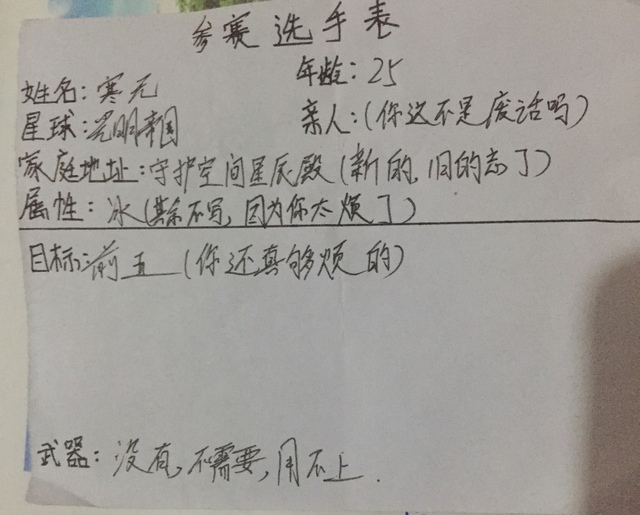 参赛选手表
姓名：寒元 年龄：25
星球：光明帝国 亲人：（你这不是废话吗）
家庭地址：守护空间星辰殿（新的，旧的忘了）
属性：冰（其余不写，因为你太烦了）
目标：前五（你还真够烦的）
武器：没有，不需要，用不上.